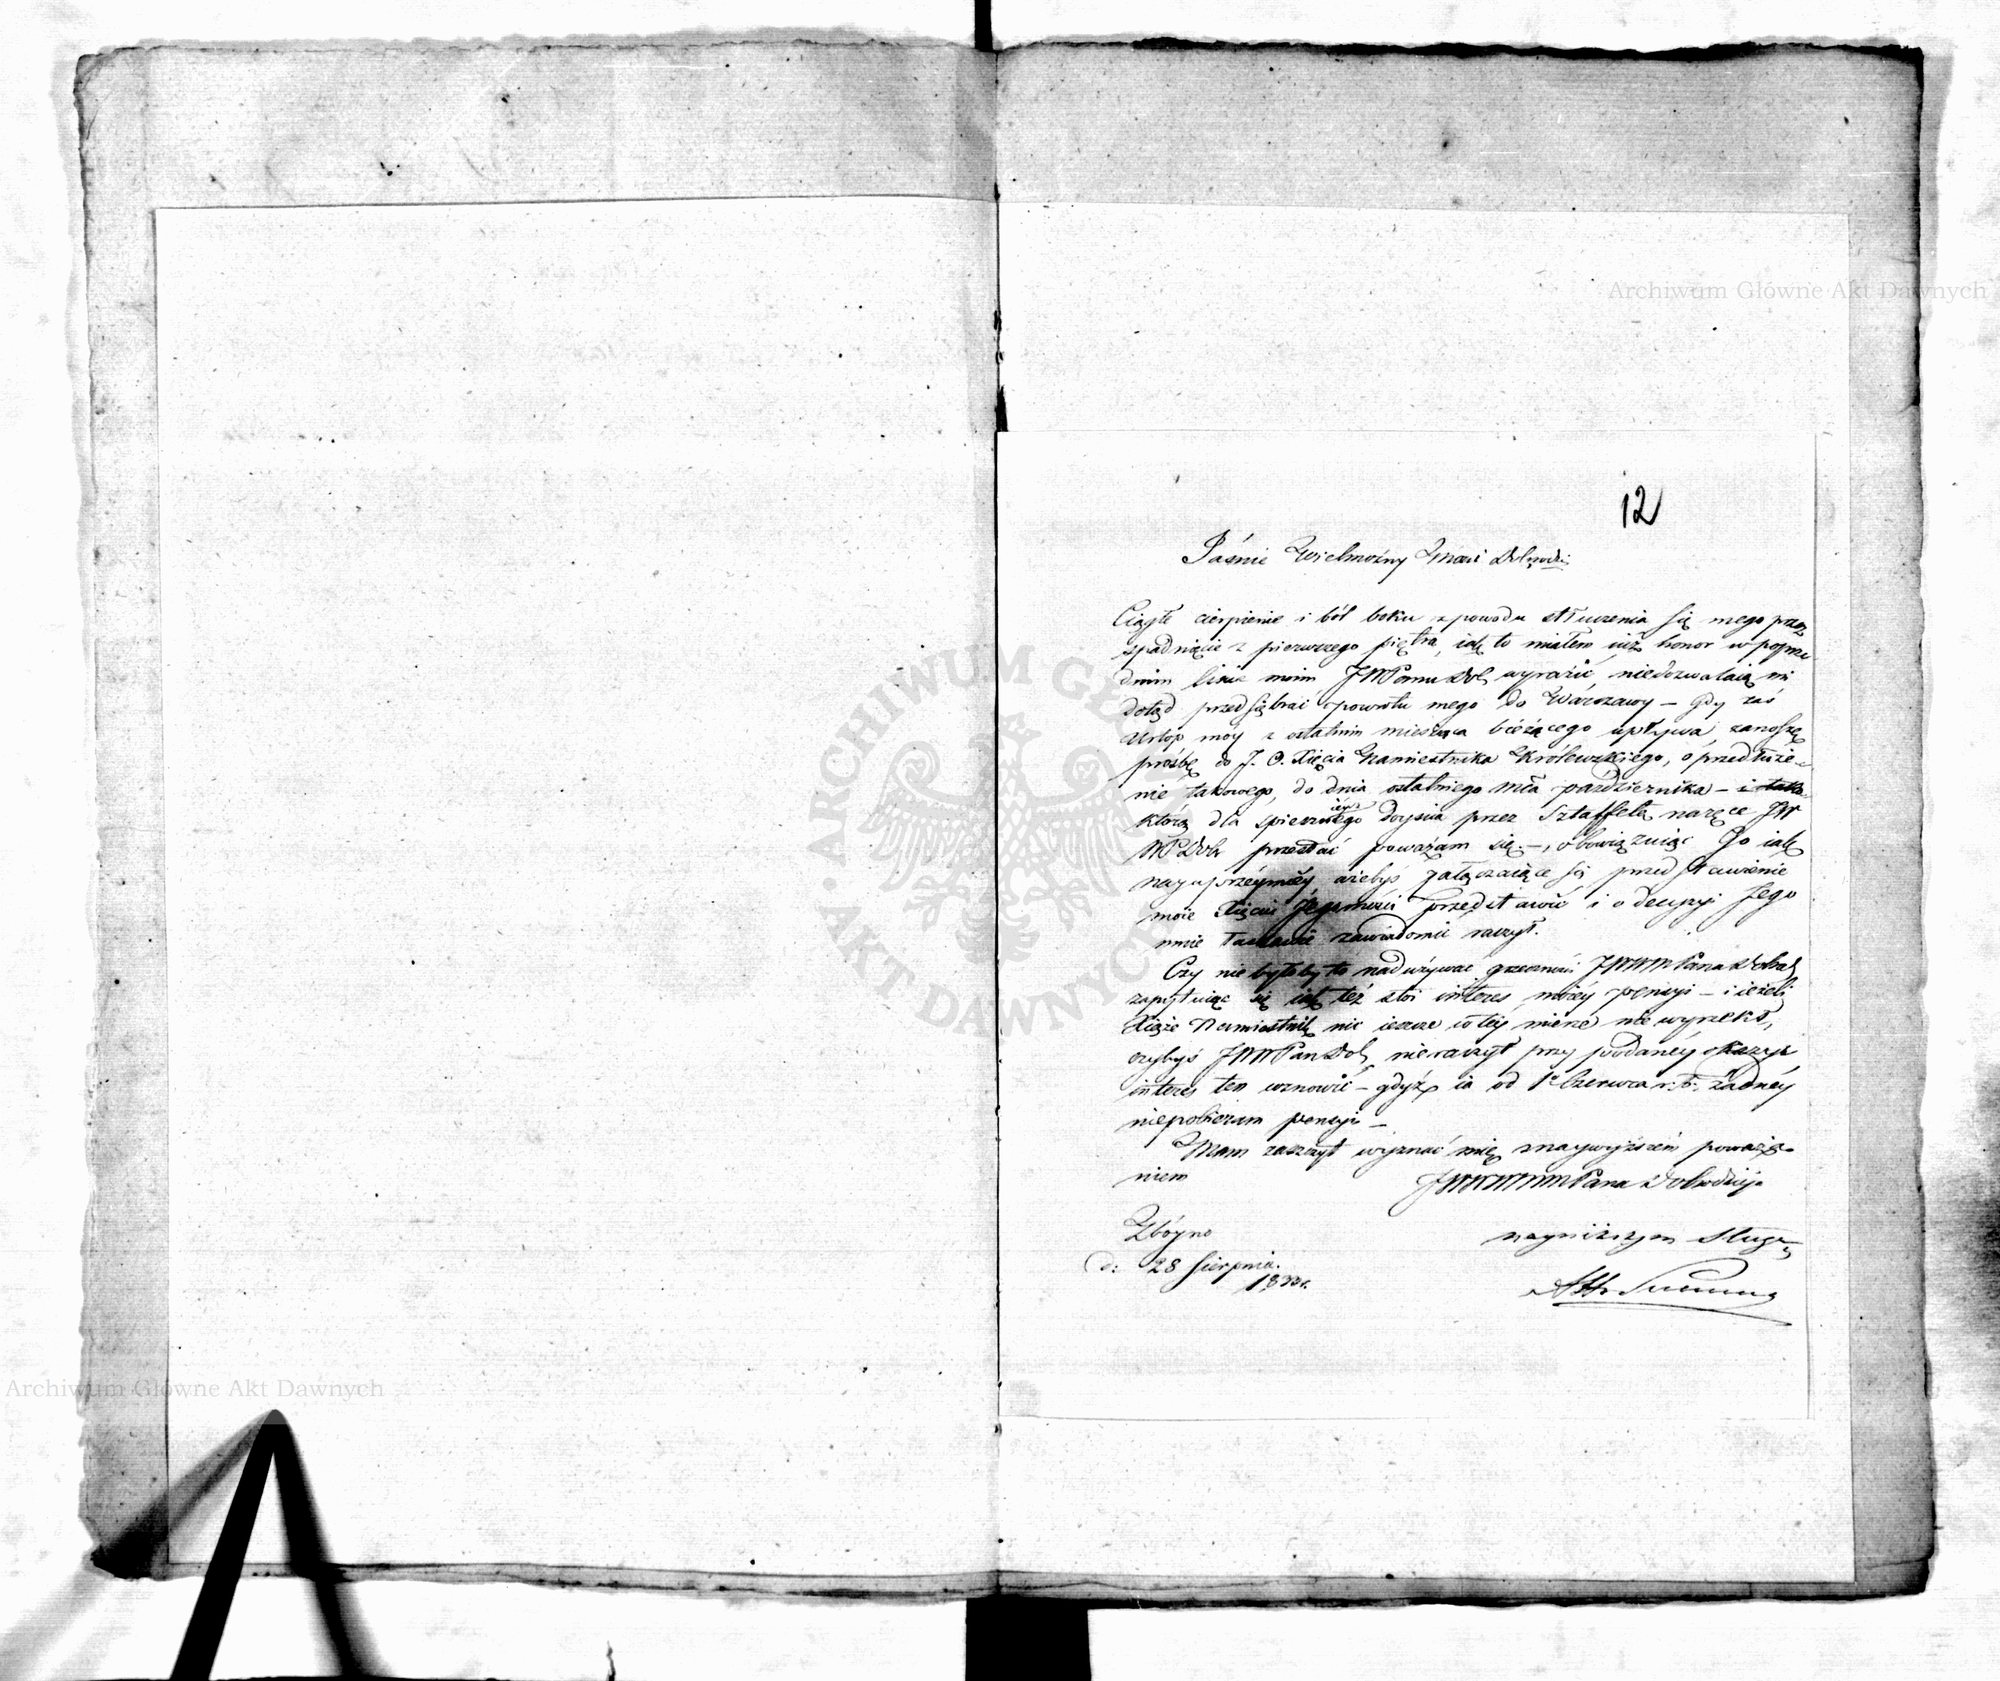 12
Jaśnie Wielmożny Mości Dobrodzi.
Ciągłe cierpienie i ból boku z powodu stłuczenia się mego przez
spadnięcie z pierwszego piętra, iak to miałem iuż honor w poprze-
dnim liście moim JWPanu Dob. wyrazić, niedozwalaią mi
dotąd przedsiębrać powrotu mego do Warszawy – Gdy zaś
Urlop móy z ostatnim miesiąca bieżącego upływa, zanoszę
prośbę do J. O. Xięcia Namiestnika Królewskiego, o przedłuże-
nie takowego, do dnia ostatniego mca października – i tako-
którą dla spiesznieyszego doyścia przez Sztaffetę na ręce JW
WPDob przesłać poważam się. –, obowiązuiąc Go iak
nayuprzeymiey, ażebyś załączaiące się przedstawienie
moie Xięciu Jegomości przedstawić i o decyzyi Jego
mnie łaskawie zawiadomić raczył.
Czy nie byłoby to nadużywać grzeczności JWWMPana Dobrod
zapytuiąc się iak też stoi interes moiey pensyi – i ieżeli
Xiąże Namiestnik nic ieszcze w tey mierze nie wyrzekł,
czybyś JWWPan Dob. nieraczył przy podaney okazyi
interes ten wznowić – gdyż ia od 1º Czerwca r. b. żadney
niepobieram pensyi –
Mam zaszczyt wyznać mię z naywyższem poważa-
niem
JWWMPana Dobrodzieja
nayniższym Sługą
Zbóyno
d: 28 Sierpnia.
Archiwum Główne Akt Dawnych
Archiwum Główne Akt Dawnych
ARCHIWUM GŁÓWNE AKT DAWNYCH